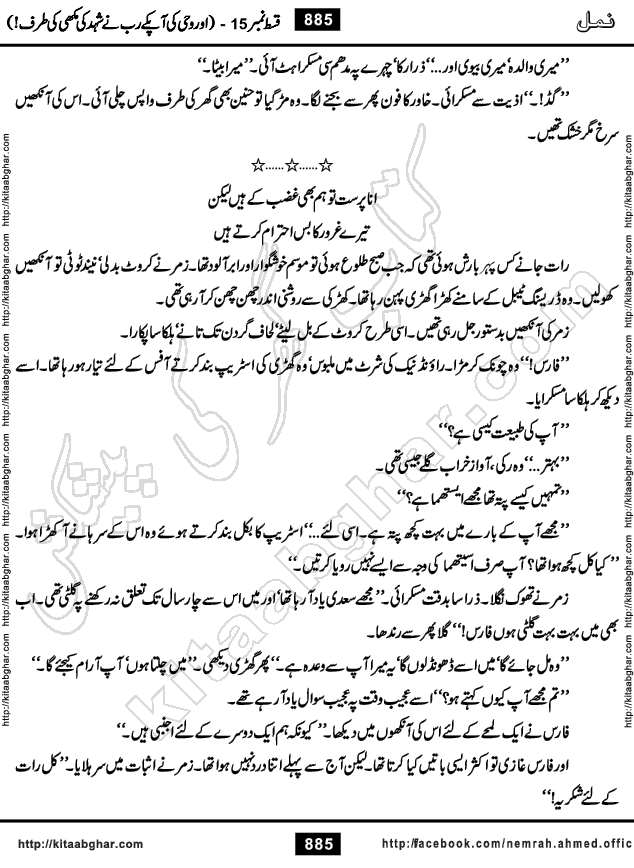 نمل 885 قسط نمبر 15 - (اور وحی کی آپکے رب نے شہد کی مکھی کی طرف!)
’’میری والدہ‘ میری بیوی اور...‘‘ ذرار کا‘ چہرے پہ مدھم سی مسکراہٹ آئی۔ ’’میرا بیٹا۔‘‘
’’گڈ!۔‘‘ اذیت سے مسکرائی۔ خاور کا فون پھر سے بجنے لگا۔ وہ مڑ گیا تو حنین بھی گھر کی طرف واپس چلی آئی۔ اس کی آنکھیں
سرخ مگر خشک تھیں۔
☆......☆......☆
انا پرست تو ہم بھی غضب کے ہیں لیکن
تیرے غرور کا بس احترام کرتے ہیں
رات جانے کس پہر بارش ہوئی تھی کہ جب صبح طلوع ہوئی تو موسم خوشگوار اور ابر آلود تھا۔ زمر نے کروٹ بدلی‘ نیند ٹوٹی تو آنکھیں
کھولیں۔ وہ ڈریسنگ ٹیبل کے سامنے کھڑا گھڑی پہن رہا تھا۔ کھڑکی سے روشنی اندر چھن چھن کر آ رہی تھی۔
زمر کی آنکھیں بدستور جل رہی تھیں۔ اسی طرح کروٹ کے بل لیٹے‘ لحاف گردن تک تانے‘ ہلکا سا پکارا۔
’’فارس!‘‘ وہ چونک کر مڑا۔ راؤنڈ نیک کی شرٹ میں ملبوس‘ وہ گھڑی کی اسٹریپ بند کرتے آفس کے لئے تیار ہو رہا تھا۔ اسے
دیکھ کر ہلکا سا مسکرایا۔
’’آپ کی طبیعت کیسی ہے؟‘‘
’’بہتر...‘‘ وہ رکی‘ آواز خراب گلے جیسی تھی۔
’’تمہیں کیسے پتہ تھا مجھے ایستھما ہے؟‘‘
’’مجھے آپ کے بارے میں بہت کچھ پتہ ہے۔ اسی لئے...‘‘ اسٹریپ کا بکل بند کرتے ہوئے وہ اس کے سرہانے آ کھڑا ہوا۔
’’کیا کل کچھ ہوا تھا؟ آپ صرف استھما کی وجہ سے ایسے نہیں رویا کرتیں۔‘‘
زمر نے تھوک نگلا۔ ذرا سا بدقت مسکرائی۔ ’’مجھے سعدی یاد آ رہا تھا‘ اور میں اس سے چار سال تک تعلق نہ رکھنے پہ گلٹی تھی۔ اب
بھی میں بہت بہت گلٹی ہوں فارس!‘‘ گلا پھر سے رندھا۔
’’وہ مل جائے گا‘ میں اسے ڈھونڈ لوں گا‘ یہ میرا آپ سے وعدہ ہے۔‘‘ پھر گھڑی دیکھی۔ ’’میں چلتا ہوں‘ آپ آرام کیجئے گا۔‘‘
’’تم مجھے آپ کیوں کہتے ہو؟‘‘ اسے عجیب وقت پہ عجیب سوال یاد آ رہے تھے۔
فارس نے ایک لمحے کے لئے اس کی آنکھوں میں دیکھا۔ ’’کیونکہ ہم ایک دوسرے کے لئے اجنبی ہیں۔‘‘
اور فارس غازی تو اکثر ایسی باتیں کیا کرتا تھا۔ لیکن آج سے پہلے اتنا درد نہیں ہوا تھا۔ زمر نے اثبات میں سر ہلایا۔ ’’کل رات
کے لئے شکریہ!‘‘
http://kitaabghar.com 885 http://facebook.com/nemrah.ahmed.offic
http://kitaabghar.com http://kitaabghar.com http://kitaabghar.com http://kitaabghar.com http://kitaabghar.com http://kitaabghar.com
کتاب گھر کی پیشکش
kitaabghar.com